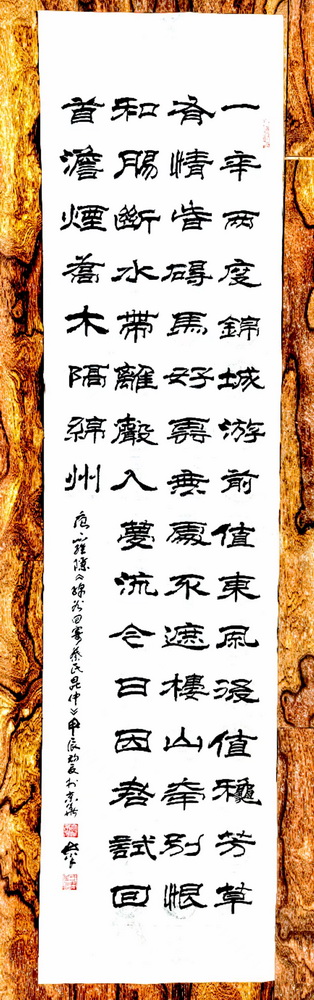 一年兩度錦城游前值東風後值穐芳草
有情皆碍馬好雲無處不遮樓山牽別恨
和腸斷水帶離聲入夢流今日因君試回
首澹煙喬木隔綿州
唐人羅隱《綿谷回寄蔡氏昆仲》甲辰初夏於京華